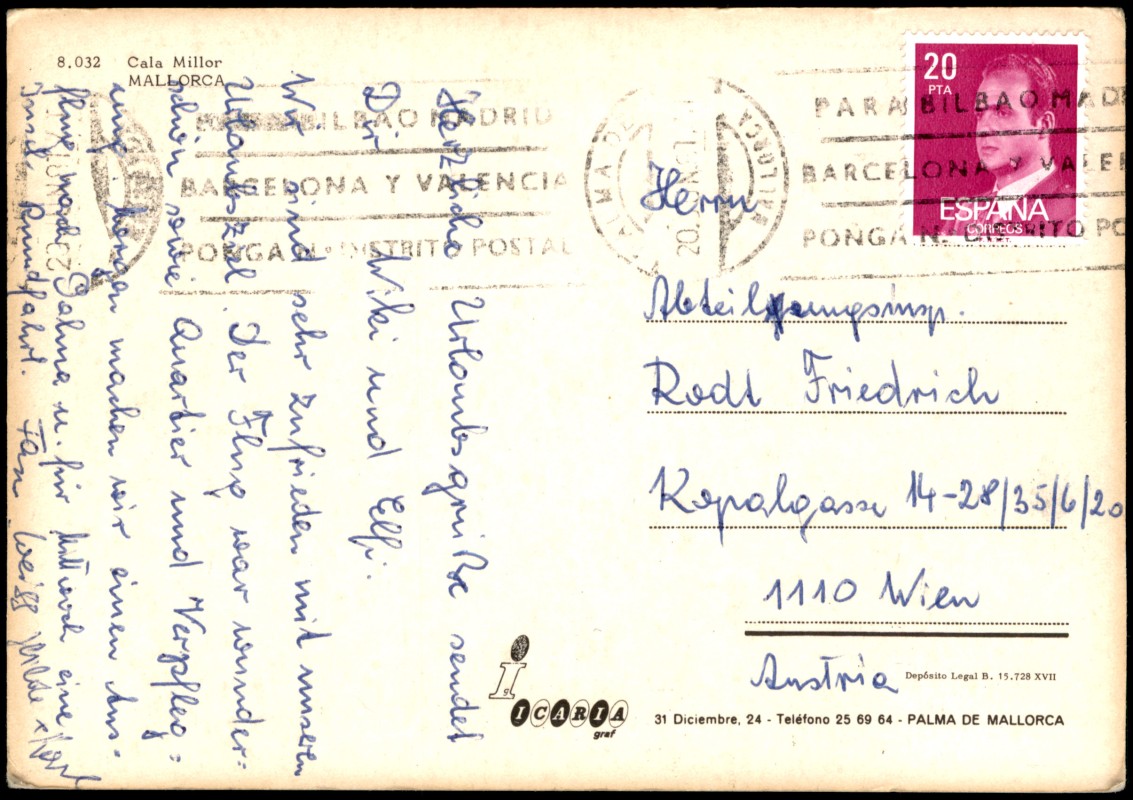 8.032 Cala Millor
MALLORCA
PARA BILBAO MADRID
BARCELONA Y VALENCIA
PONGA N.º DISTRITO POSTAL
PARA BILBAO MAD
BARCELONA Y VALE
PONGA N. DISTRITO PO
20
PTA
ESPAÑA
CORREOS
Herzliche Urlaubsgrüße sendet
Dir Wiki und Elfi.
Wir sind sehr zufrieden mit unserer
Urlaubszal. Der Flug war wunder-
schön sowie Quartier und Verpfleg=
ung. Morgen machen wir einen Aus-
flug nach Palma u. für Mittwoch eine
Insel Rundfahrt. Fam Weiss
Herrn
Abteilgungsinsp.
Rodt Friedrich
Kopalgasse 14-28/35/6/20
1110 Wien
Austria
Depósito Legal B. 15.728 XVII
ICARIA
graf
31 Diciembre, 24 - Teléfono 25 69 64 - PALMA DE MALLORCA